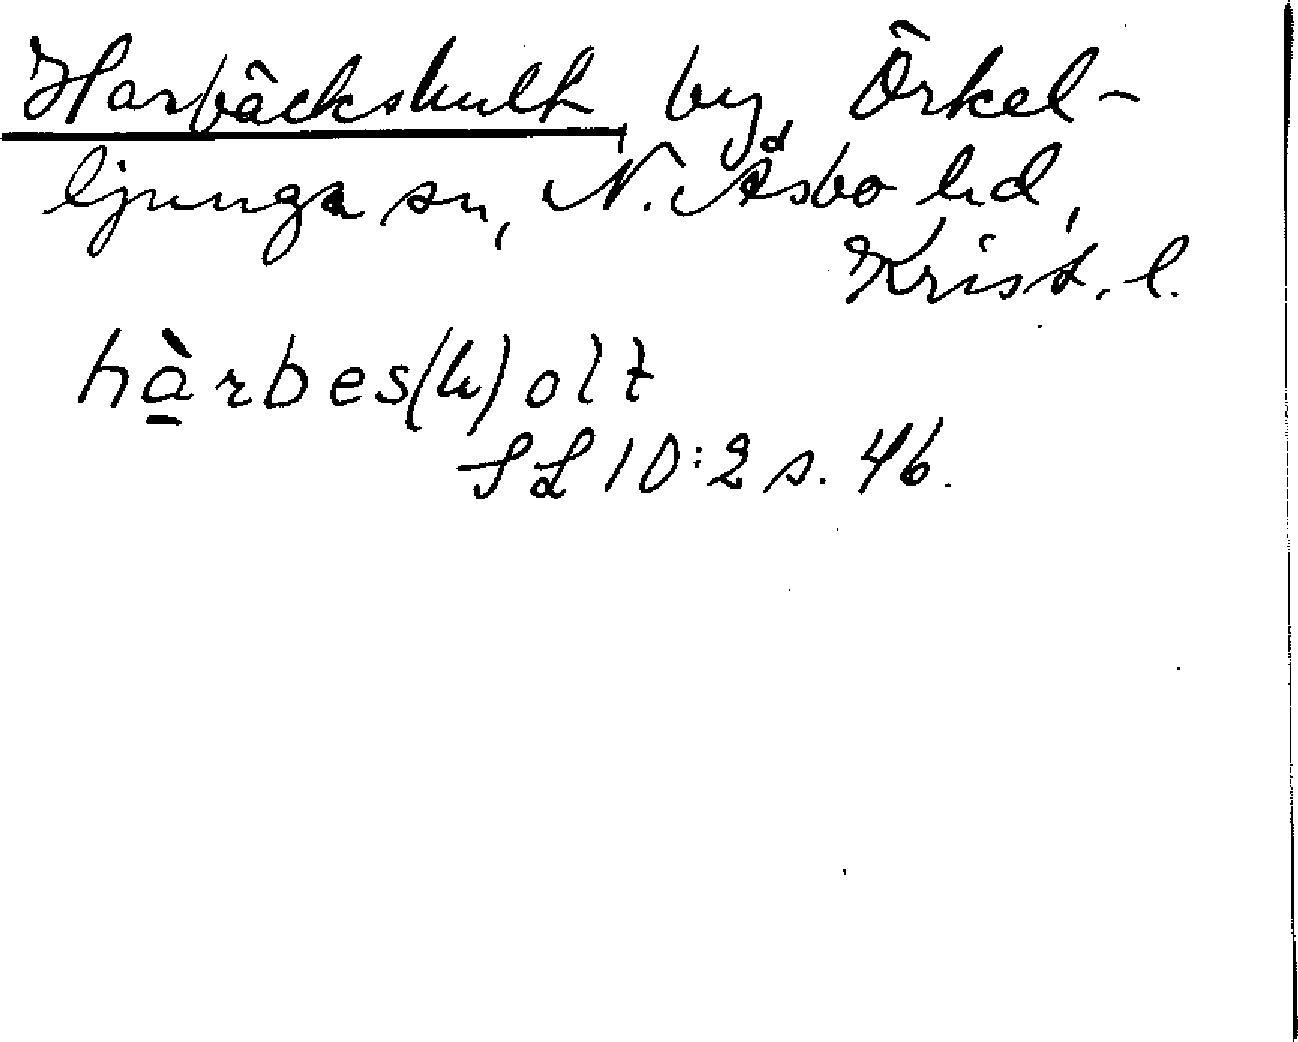 Harbäckshult, by, Örkel-
ljunga sn, N. Åsbo hd,
Krist. l.
hàrbes(h)olt
SL 10:2 s. 46.